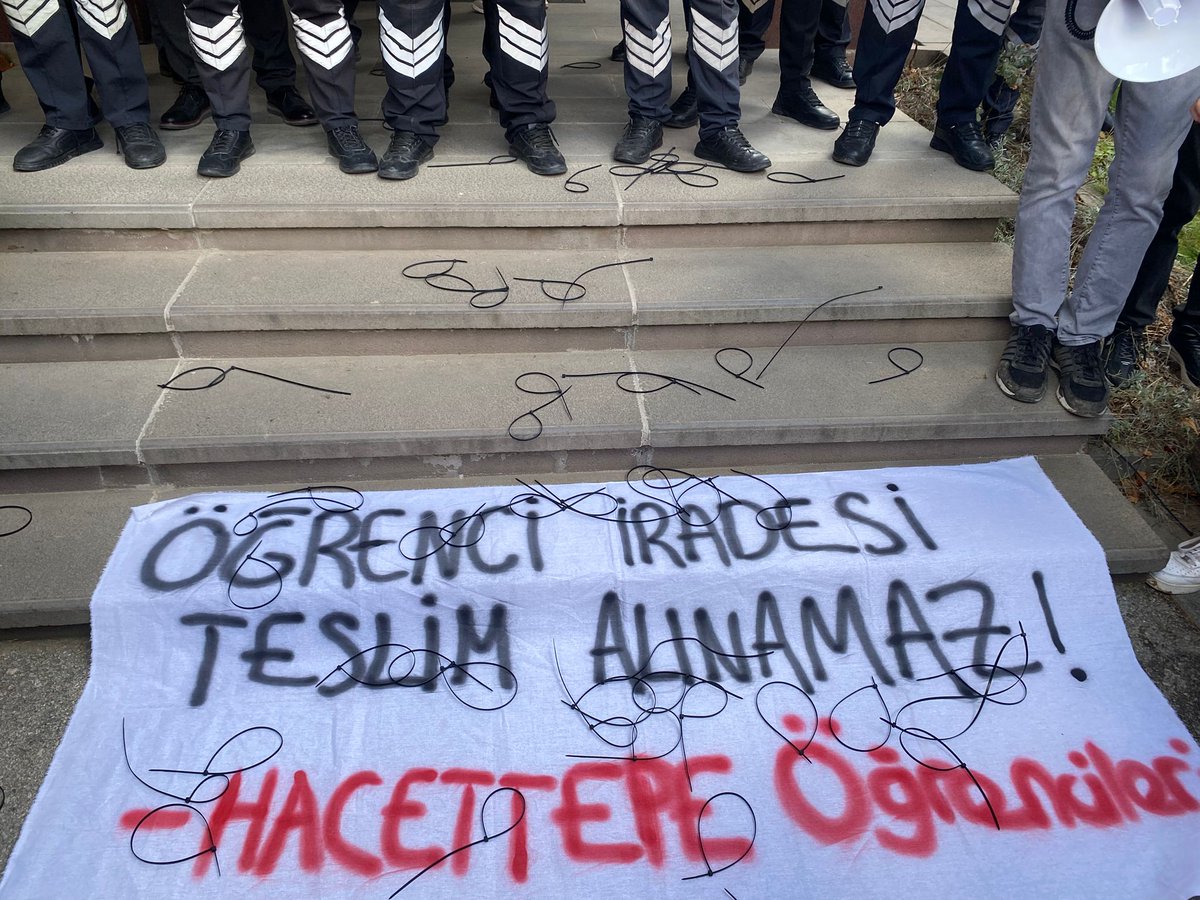 ÖĞRENCİ İRADESİ
TESLİM ALINAMAZ!
-HACETTEPE Öğrenciler